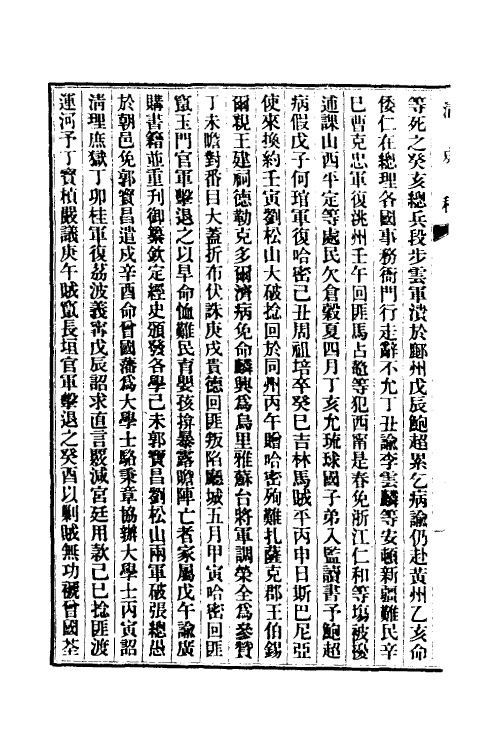 清史稿
等死之癸亥總兵段步雲軍潰於鄜州戊辰鮑超累乞病諭仍赴黃州乙亥命
倭仁在總理各國事務衙門行走辭不允丁丑諭李雲麟等安頓新疆難民辛
巳曹克忠軍復洮州壬午回匪馬占鼇等犯西甯是春免浙江仁和等場被擾
逋課山西平定等處民欠倉穀夏四月丁亥允琉球國子弟入監讀書予鮑超
病假戊子何琯軍復哈密己丑周祖培卒癸巳吉林馬賊平丙申日斯巴尼亞
使來換約壬寅劉松山大破捻回於同州丙午贈哈密殉難扎薩克郡王伯錫
爾親王建祠德勒克多爾濟病免命麟興為烏里雅蘇台將軍調榮全為參贊
丁未瞻對番目大蓋折布伏誅庚戌貴德回匪叛陷廳城五月甲寅哈密回匪
竄玉門官軍擊退之以旱命恤難民育嬰孩揜暴露贍陣亡者家屬戊午諭廣
購書籍並重刊御纂欽定經史頒發各學己未郭寶昌劉松山兩軍破張總愚
於朝邑免郭寶昌遣戍辛酉命曾國藩為大學士駱秉章協辦大學士丙寅詔
清理庶獄丁卯桂軍復荔波義甯戊辰詔求直言縣減宮廷用款己巳捻匪渡
運河予丁寶楨嚴議庚午賊竄長垣官軍擊退之癸酉以剿賊無功褫曾國荃